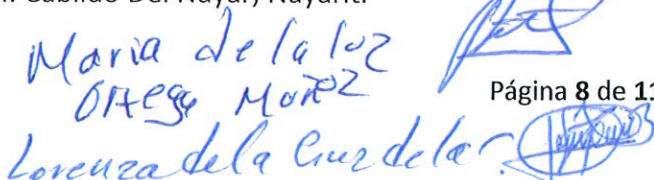 Cabildo Del Nayar, Nayarit.
Maria de la luz
Ortega Muñoz
Página 8 de 11
Lorenza de la Cruz de la